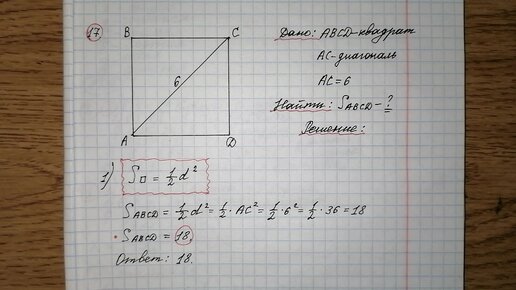 17
B C
6
A D
Дано: ABCD-квадрат
AC-диагональ
AC = 6
Найти: S ABCD - ?
Решение:
1) S□ = 1/2 d²
S ABCD = 1/2 d² = 1/2 · AC² = 1/2 · 6² = 1/2 · 36 = 18
S ABCD = 18.
Ответ: 18.